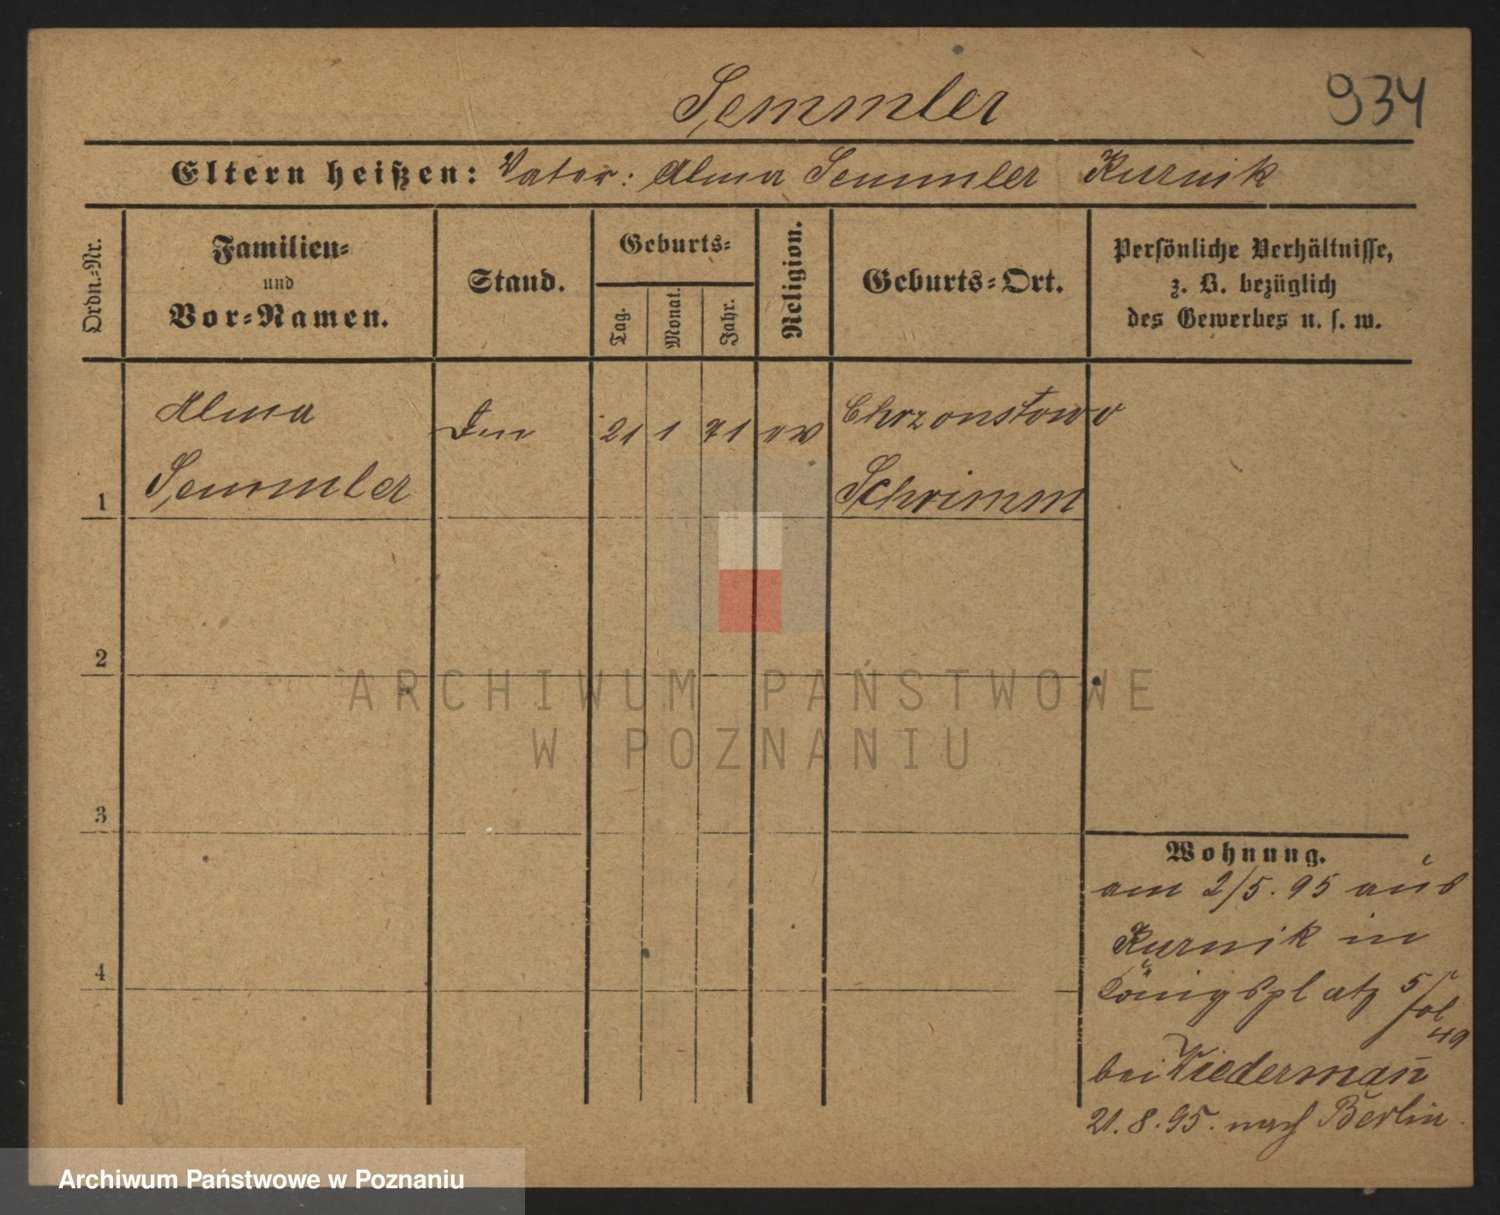 Semmler 934
Eltern heißen: Vater: Alma Semmler Kurnik
Ordn.-Nr.
Familien-
und
Vor-Namen.
Stand.
Geburts-
Tag.
Monat.
Jahr.
Religion.
Geburts-Ort.
Persönliche Verhältnisse,
z. B. bezüglich
des Gewerbes u. s. w.
Alma 21 1 71 ev Chrzonstowo
1 Semmler Schrimm
2
3
4
Wohnung.
am 2/5. 95 aus
Kurnik in
Königsplatz 5
49
bei Wiedermañ
21. 8. 95. nach Berlin.
ARCHIWUM PAŃSTWOWE
W POZNANIU
Archiwum Państwowe w Poznaniu